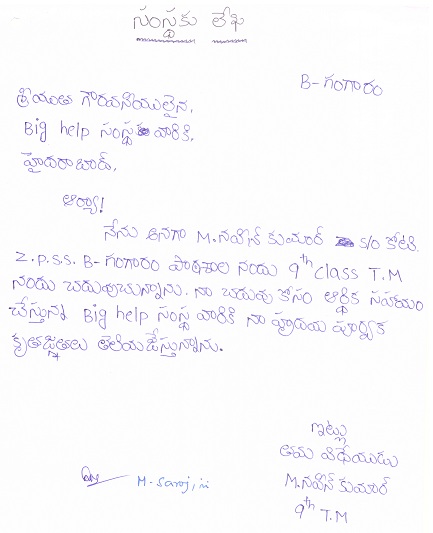 సంస్థకు లేఖ
B- గంగారం
శ్రీయుత గౌరవనీయులైన,
Big help సంస్థ వారికి,
హైదరాబాద్,
ఆర్యా!
నేను అనగా M.నవీన్ కుమార్ S/o కోటి
Z.P.S.S. B- గంగారం పాఠశాల నందు 9th class T.M
నందు చదువుచున్నాను. నా చదువు కోసం ఆర్థిక సహాయం
చేస్తున్న Big help సంస్థ వారికి నా హృదయ పూర్వక
కృతజ్ఞతలు తెలియజేస్తున్నాను.
ఇట్లు
తమ విధేయుడు
M.నవీన్ కుమార్
9th T.M
M. Saroj,ini